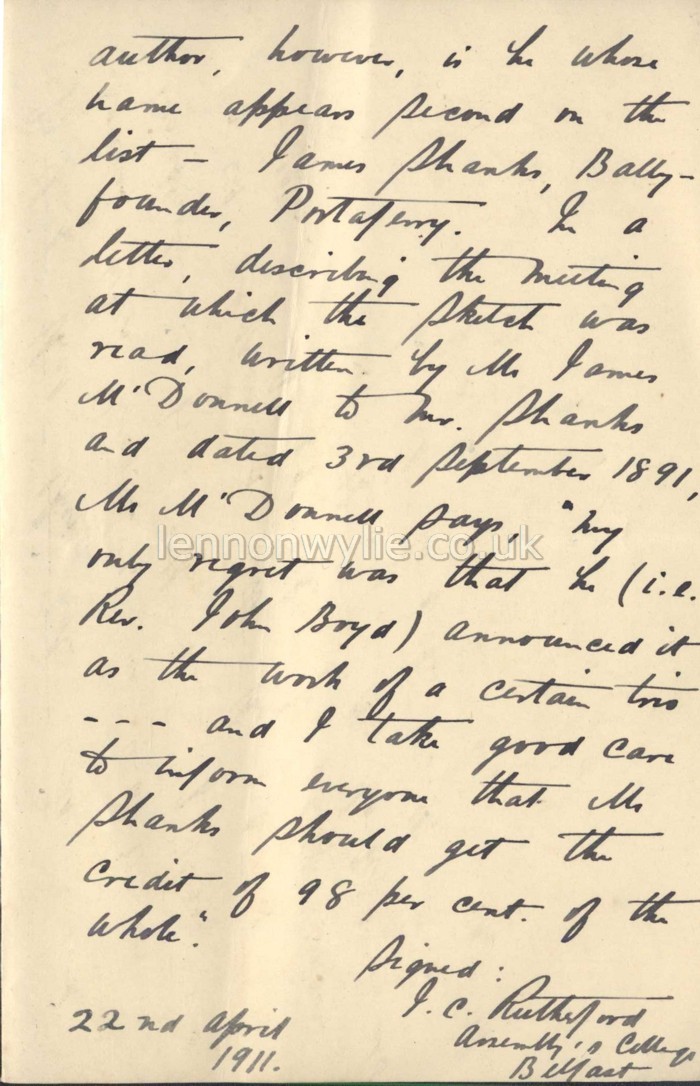 author, however, is he whose
name appears second on the
list – James Shanks, Bally-
founder, Portaferry. In a
letter, describing the meeting
at which the sketch was
read, written by Mr James
McDonnell to Mr. Shanks
and dated 3rd September 1891,
Mr McDonnell says, "my
lennonwylie.co.uk
only regret was that he (i.e.
Rev. John Boyd) announced it
as the work of a certain trio
--- and I take good care
to inform everyone that Mr
Shanks should get the
credit of 98 per cent. of the
whole."
Signed:
J. C. Rutherford
Assembly's College
Belfast
22nd April
1911.